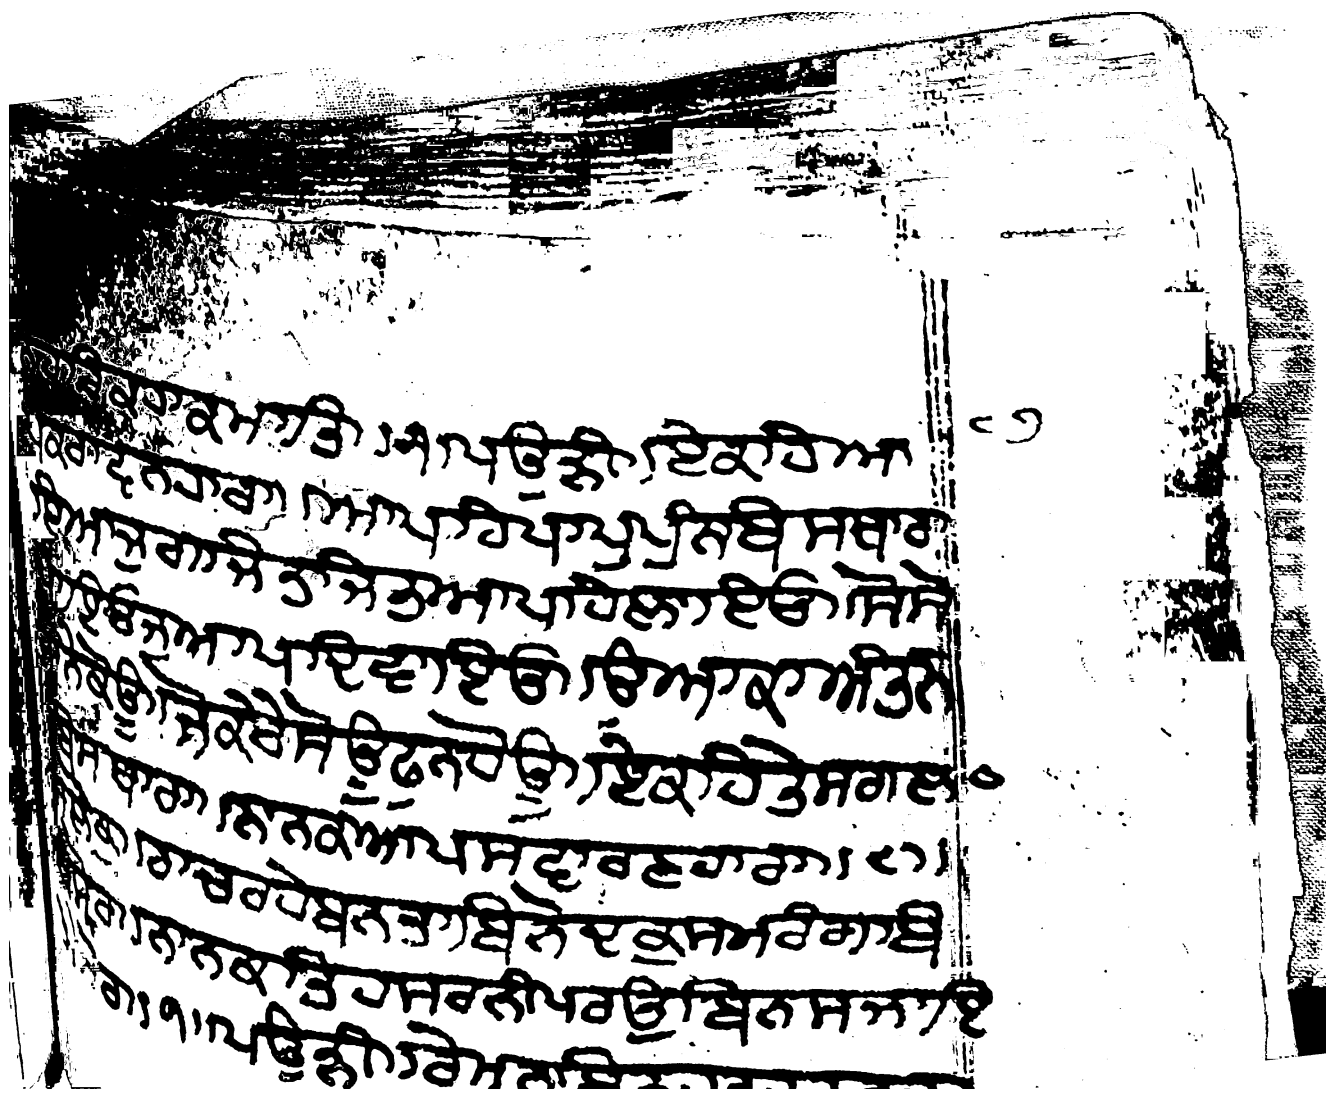 ਕਹਾ ਕਮਾਤਿ ॥੧॥ ਪਉੜੀ ॥ ਏਕਹਿ ਆ
ਪਿ ਕਰਾਵਨਹਾਰਾ ॥ ਆਪਹਿ ਪਾਪ ਪੁੰਨ ਬਿਸਥਾਰ
ਇਆ ਜੁਗ ਜਿਤੁ ਜਿਤੁ ਆਪਹਿ ਲਾਇਓ ॥ ਸੋ ਸੋ
ਪਾਇਓ ਜੁ ਆਪਿ ਦਿਵਾਇਓ ॥ ਉਆ ਕਾ ਅੰਤੁ ਨ
ਜਾਨੈ ਕੋਊ ॥ ਜੋ ਕਰੈ ਸੋਊ ਫੁਨਿ ਹੋਊ ॥ ਏਕਹਿ ਤੇ ਸਗਲਾ
ਬਿਸਥਾਰਾ ॥ ਨਾਨਕ ਆਪਿ ਸਵਾਰਣਹਾਰਾ ॥੮॥
ਸਲੋਕੁ ॥ ਰਾਚਿ ਰਹੇ ਬਨਿਤਾ ਬਿਨੋਦ ਕੁਸਮ ਰੰਗ ਬਿ
ਖ ਸੋਰ ॥ ਨਾਨਕ ਤਿਹ ਸਰਨੀ ਪਰਉ ਬਿਨਸਿ ਜਾਇ
ਮੋਰ ॥੧॥ ਪਉੜੀ ॥ ਰੇ ਮਨ ਬਿਨੁ